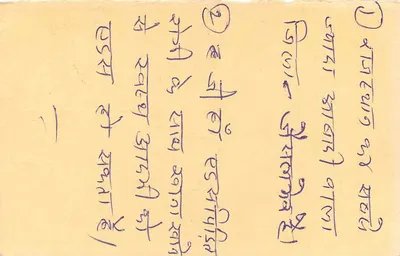 ① राजस्थान का सबसे
ज्यादा आबादी वाला
जिला - जैसलमेर है।
② ह जी हाँ एड्स पीड़ित
रोगी के साथ खाना खाने
से स्वस्थ आदमी को
एड्स हो सकता है।